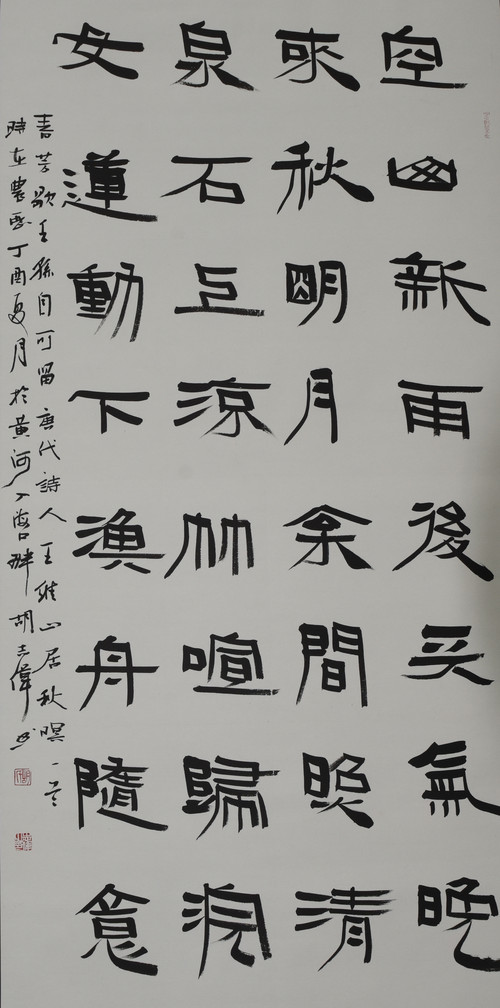 空山新雨後天氣晚
來秋明月枀間照清
泉石上流竹喧歸浣
女蓮動下漁舟隨意
春芳歇王孫自可留唐代詩人王維山居秋暝一首
時在農曆丁酉夏月於黃河入海口畔胡志偉書